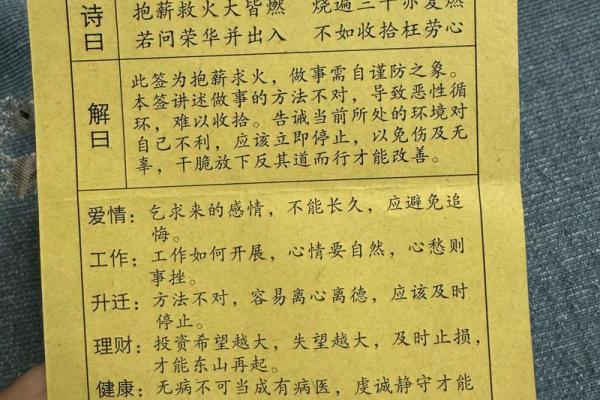 诗曰
抱薪救火大皆燃 烧遍三千亦复燃
若问荣华并出入 不如收拾枉劳心
解曰
此签为抱薪求火，做事需自谨防之象。
本签讲述做事的方法不对，导致恶性循
环，难以收拾。告诫当前所处的环境对
自己不利，应该立即停止，以免伤及无
辜，干脆放下反其道而行才能改善。
爱情：乞求来的感情，不能长久，应避免追
悔。
工作：工作如何开展，心情要自然，心愁则
事挫。
升迁：方法不对，容易离心离德，应该及时
停止。
理财：投资希望越大，失望越大，及时止损，
才能东山再起。
健康：无病不可当成有病医，虔诚静守才能